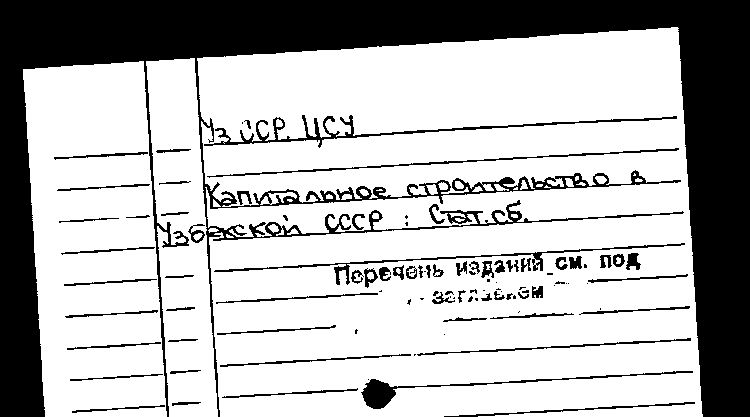 Уз ССР. ЦСУ
Капитальное строительство в
Узбекской СССР : Стат.сб.
Перечень изданий см. под
заглавием